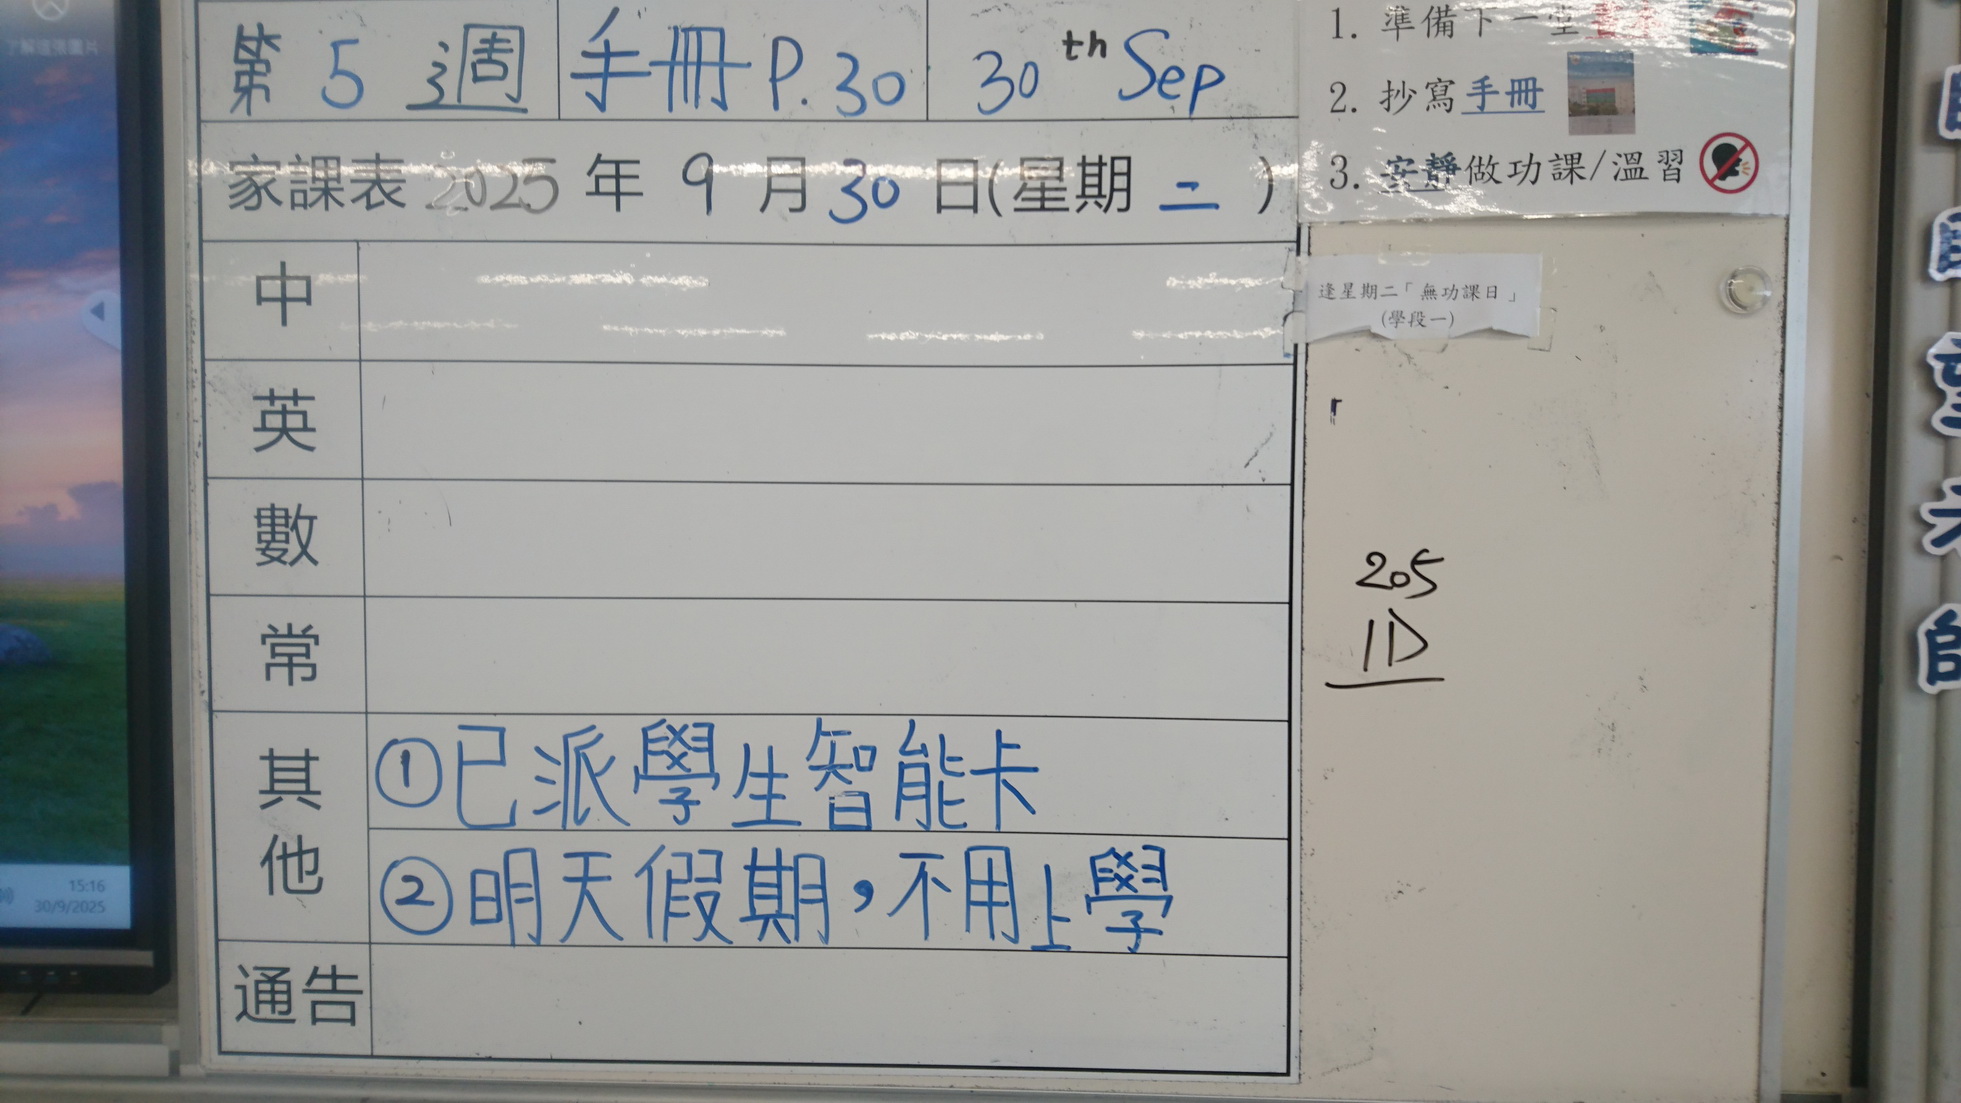 第 5 週 手冊 P.30 30th Sep
家課表 2025 年 9 月 30 日(星期 二 )
中
英
數
常
其他
①已派學生智能卡
②明天假期，不用上學
通告
1. 準備下一堂
2. 抄寫手冊
3. 安靜做功課/溫習
逢星期二「無功課日」
(學段一)
205
1D
15:16
30/9/2025